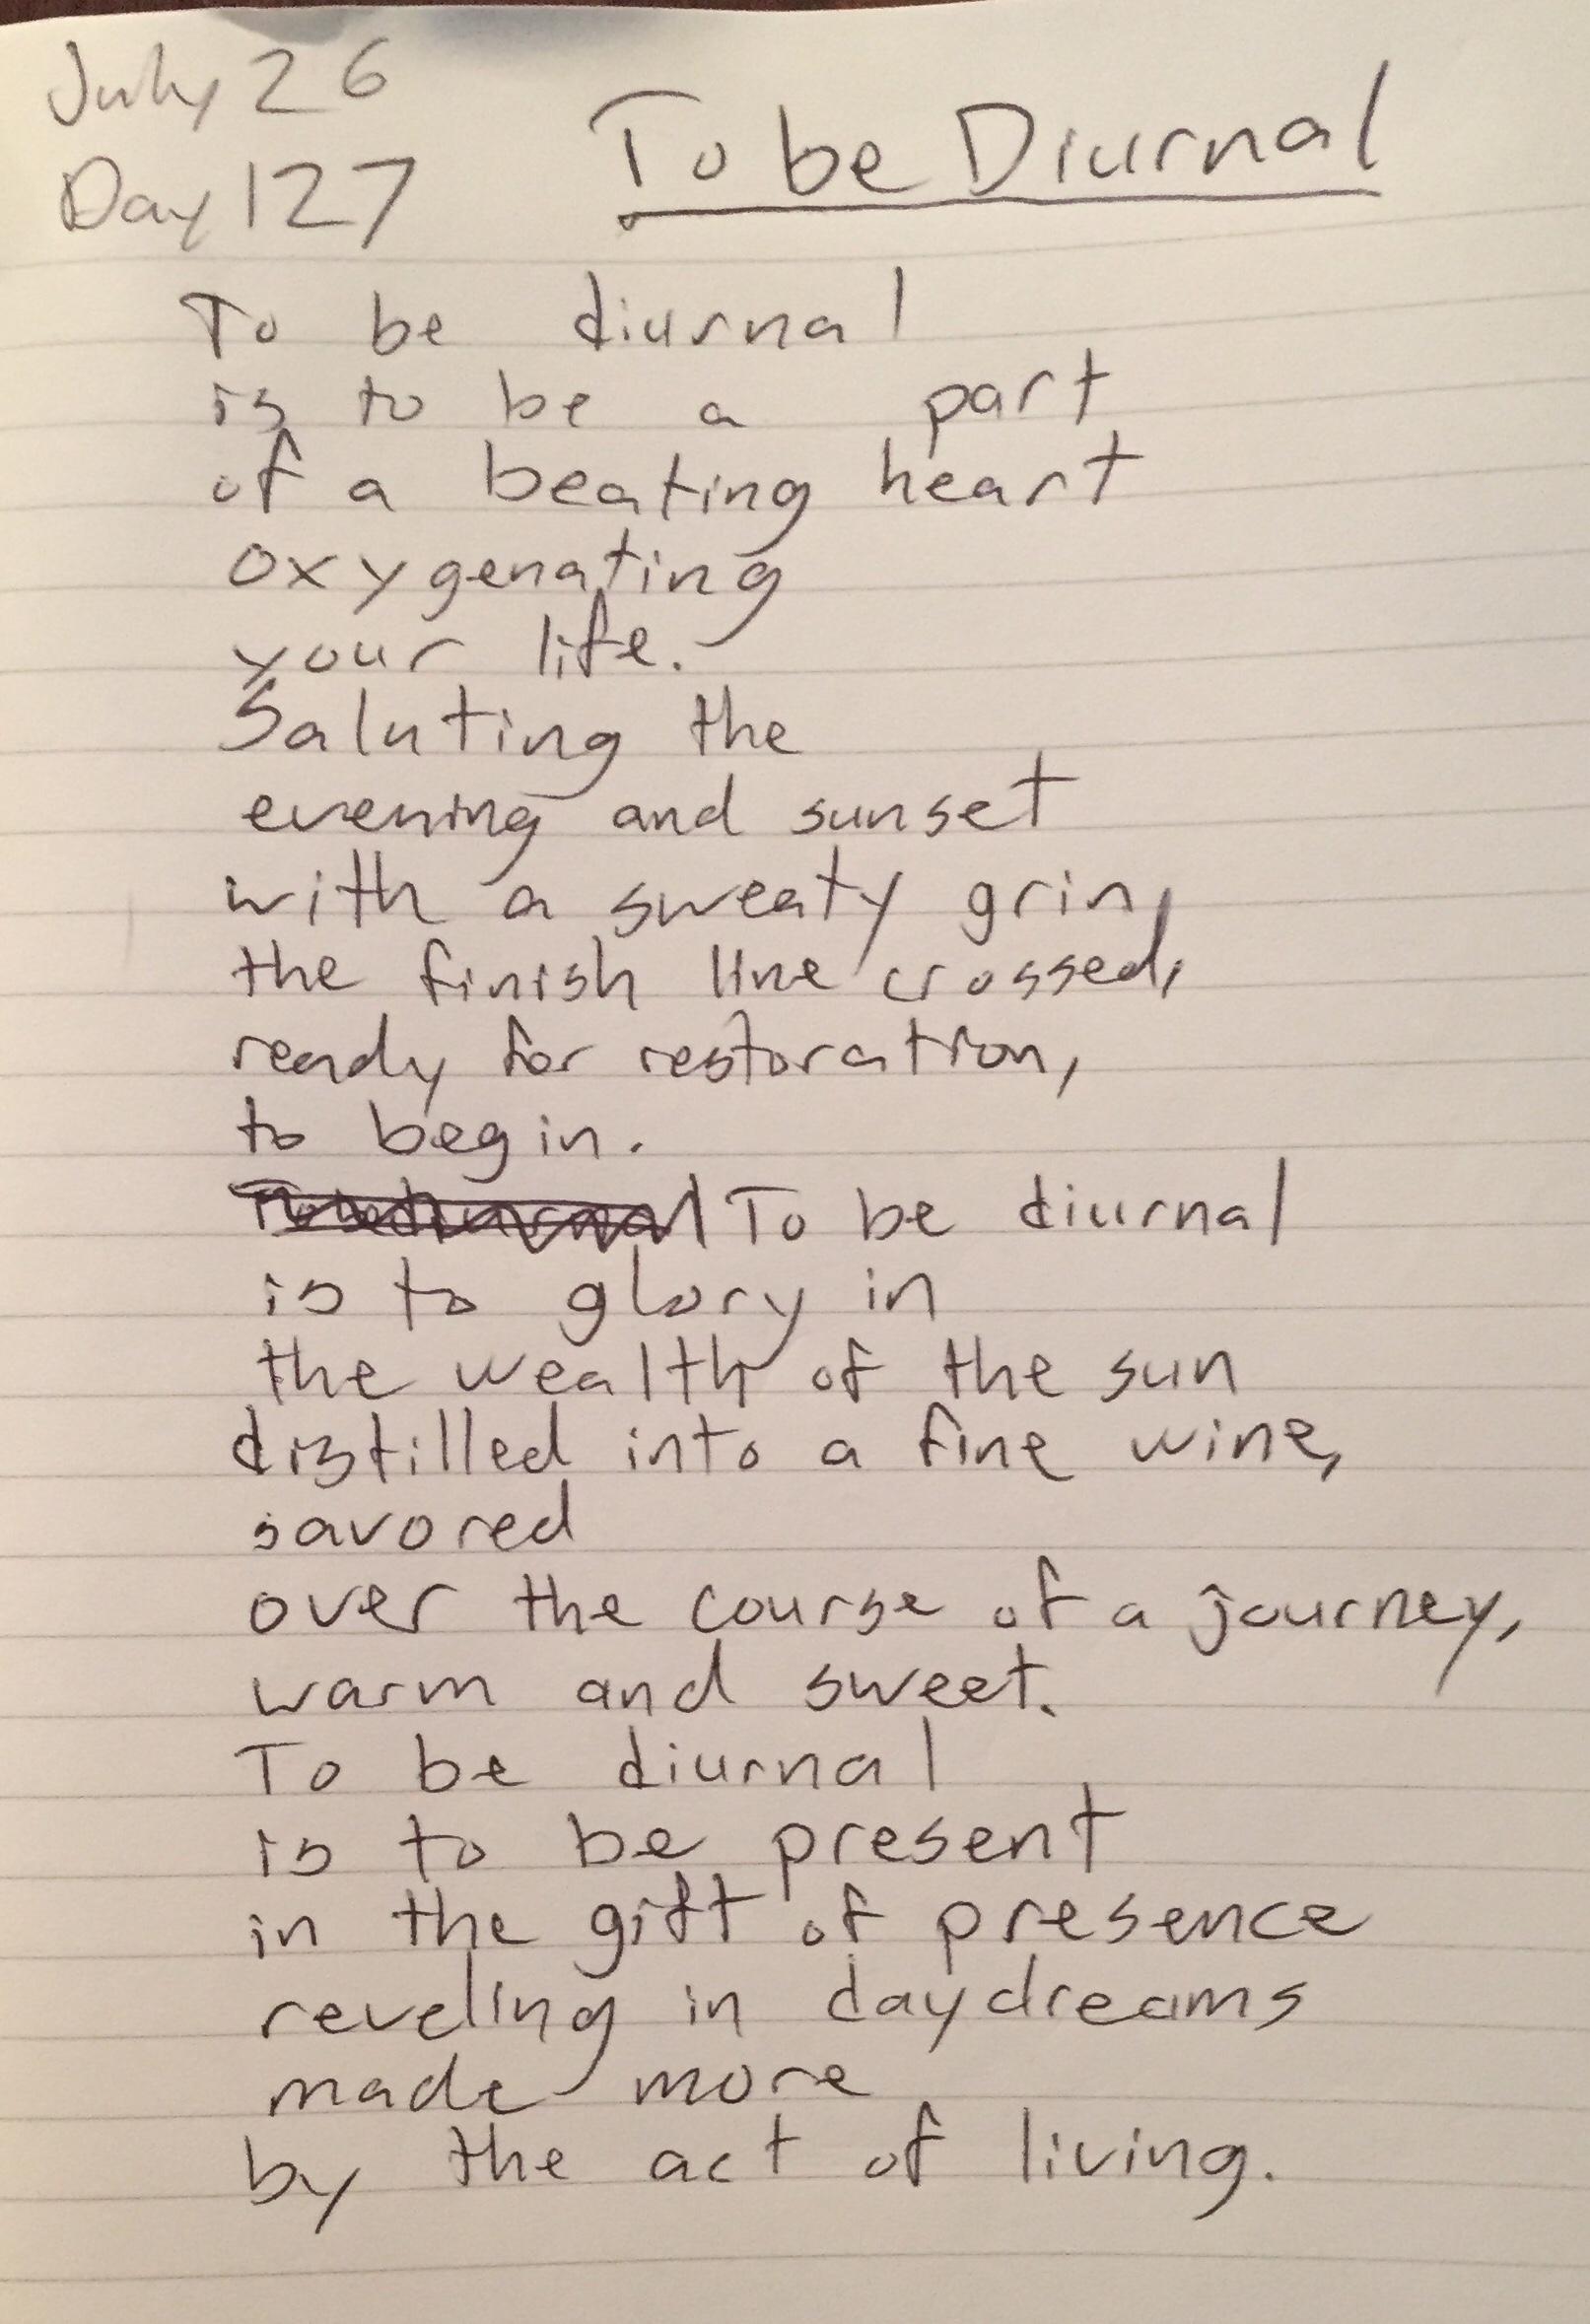 July 26
Day 127
To be Diurnal
To be diurnal
is to be a part
of a beating heart
oxygenating
your life.
Saluting the
evening and sunset
with a sweaty grin,
the finish line crossed,
ready for restoration,
to begin.
To be diurnal To be diurnal
is to glory in
the wealth of the sun
distilled into a fine wine,
savored
over the course of a journey,
warm and sweet.
To be diurnal
is to be present
in the gift of presence
reveling in daydreams
made more
by the act of living.